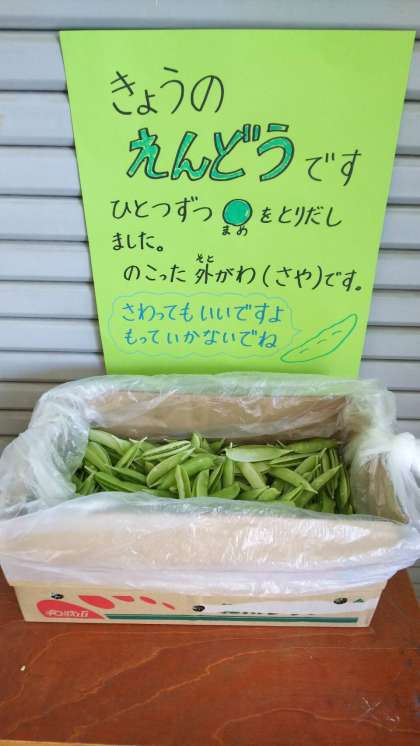 きょうの
えんどうです
ひとつずつ まめ をとりだし
ました。
のこった外(そと)がわ(さや)です。
さわってもいいですよ
もっていかないでね